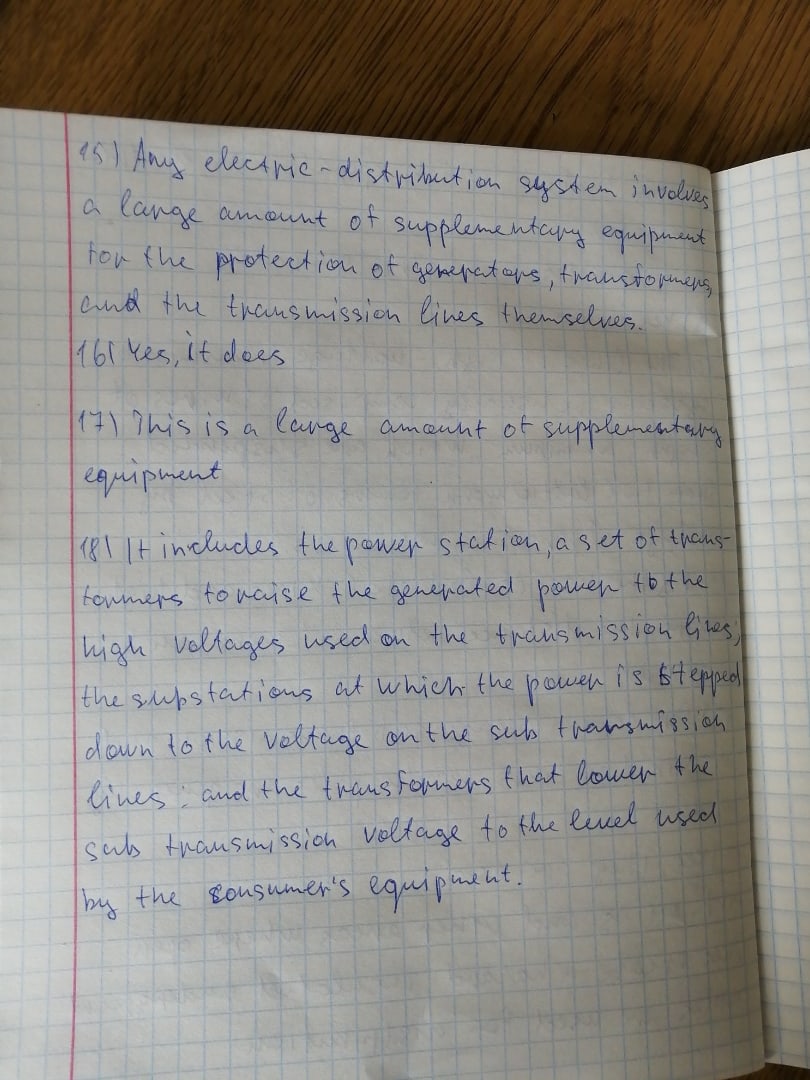 15) Any electric-distribution system involves
a large amount of supplementary equipment
for the protection of generators, transformers,
and the transmission lines themselves.
16) Yes, it does
17) This is a large amount of supplementary
equipment
18) It includes the power station, a set of trans-
formers to raise the generated power to the
high voltages used on the transmission lines;
the substations at which the power is stepped
down to the voltage on the sub transmission
lines; and the transformers that lower the
sub transmission voltage to the level used
by the consumer's equipment.